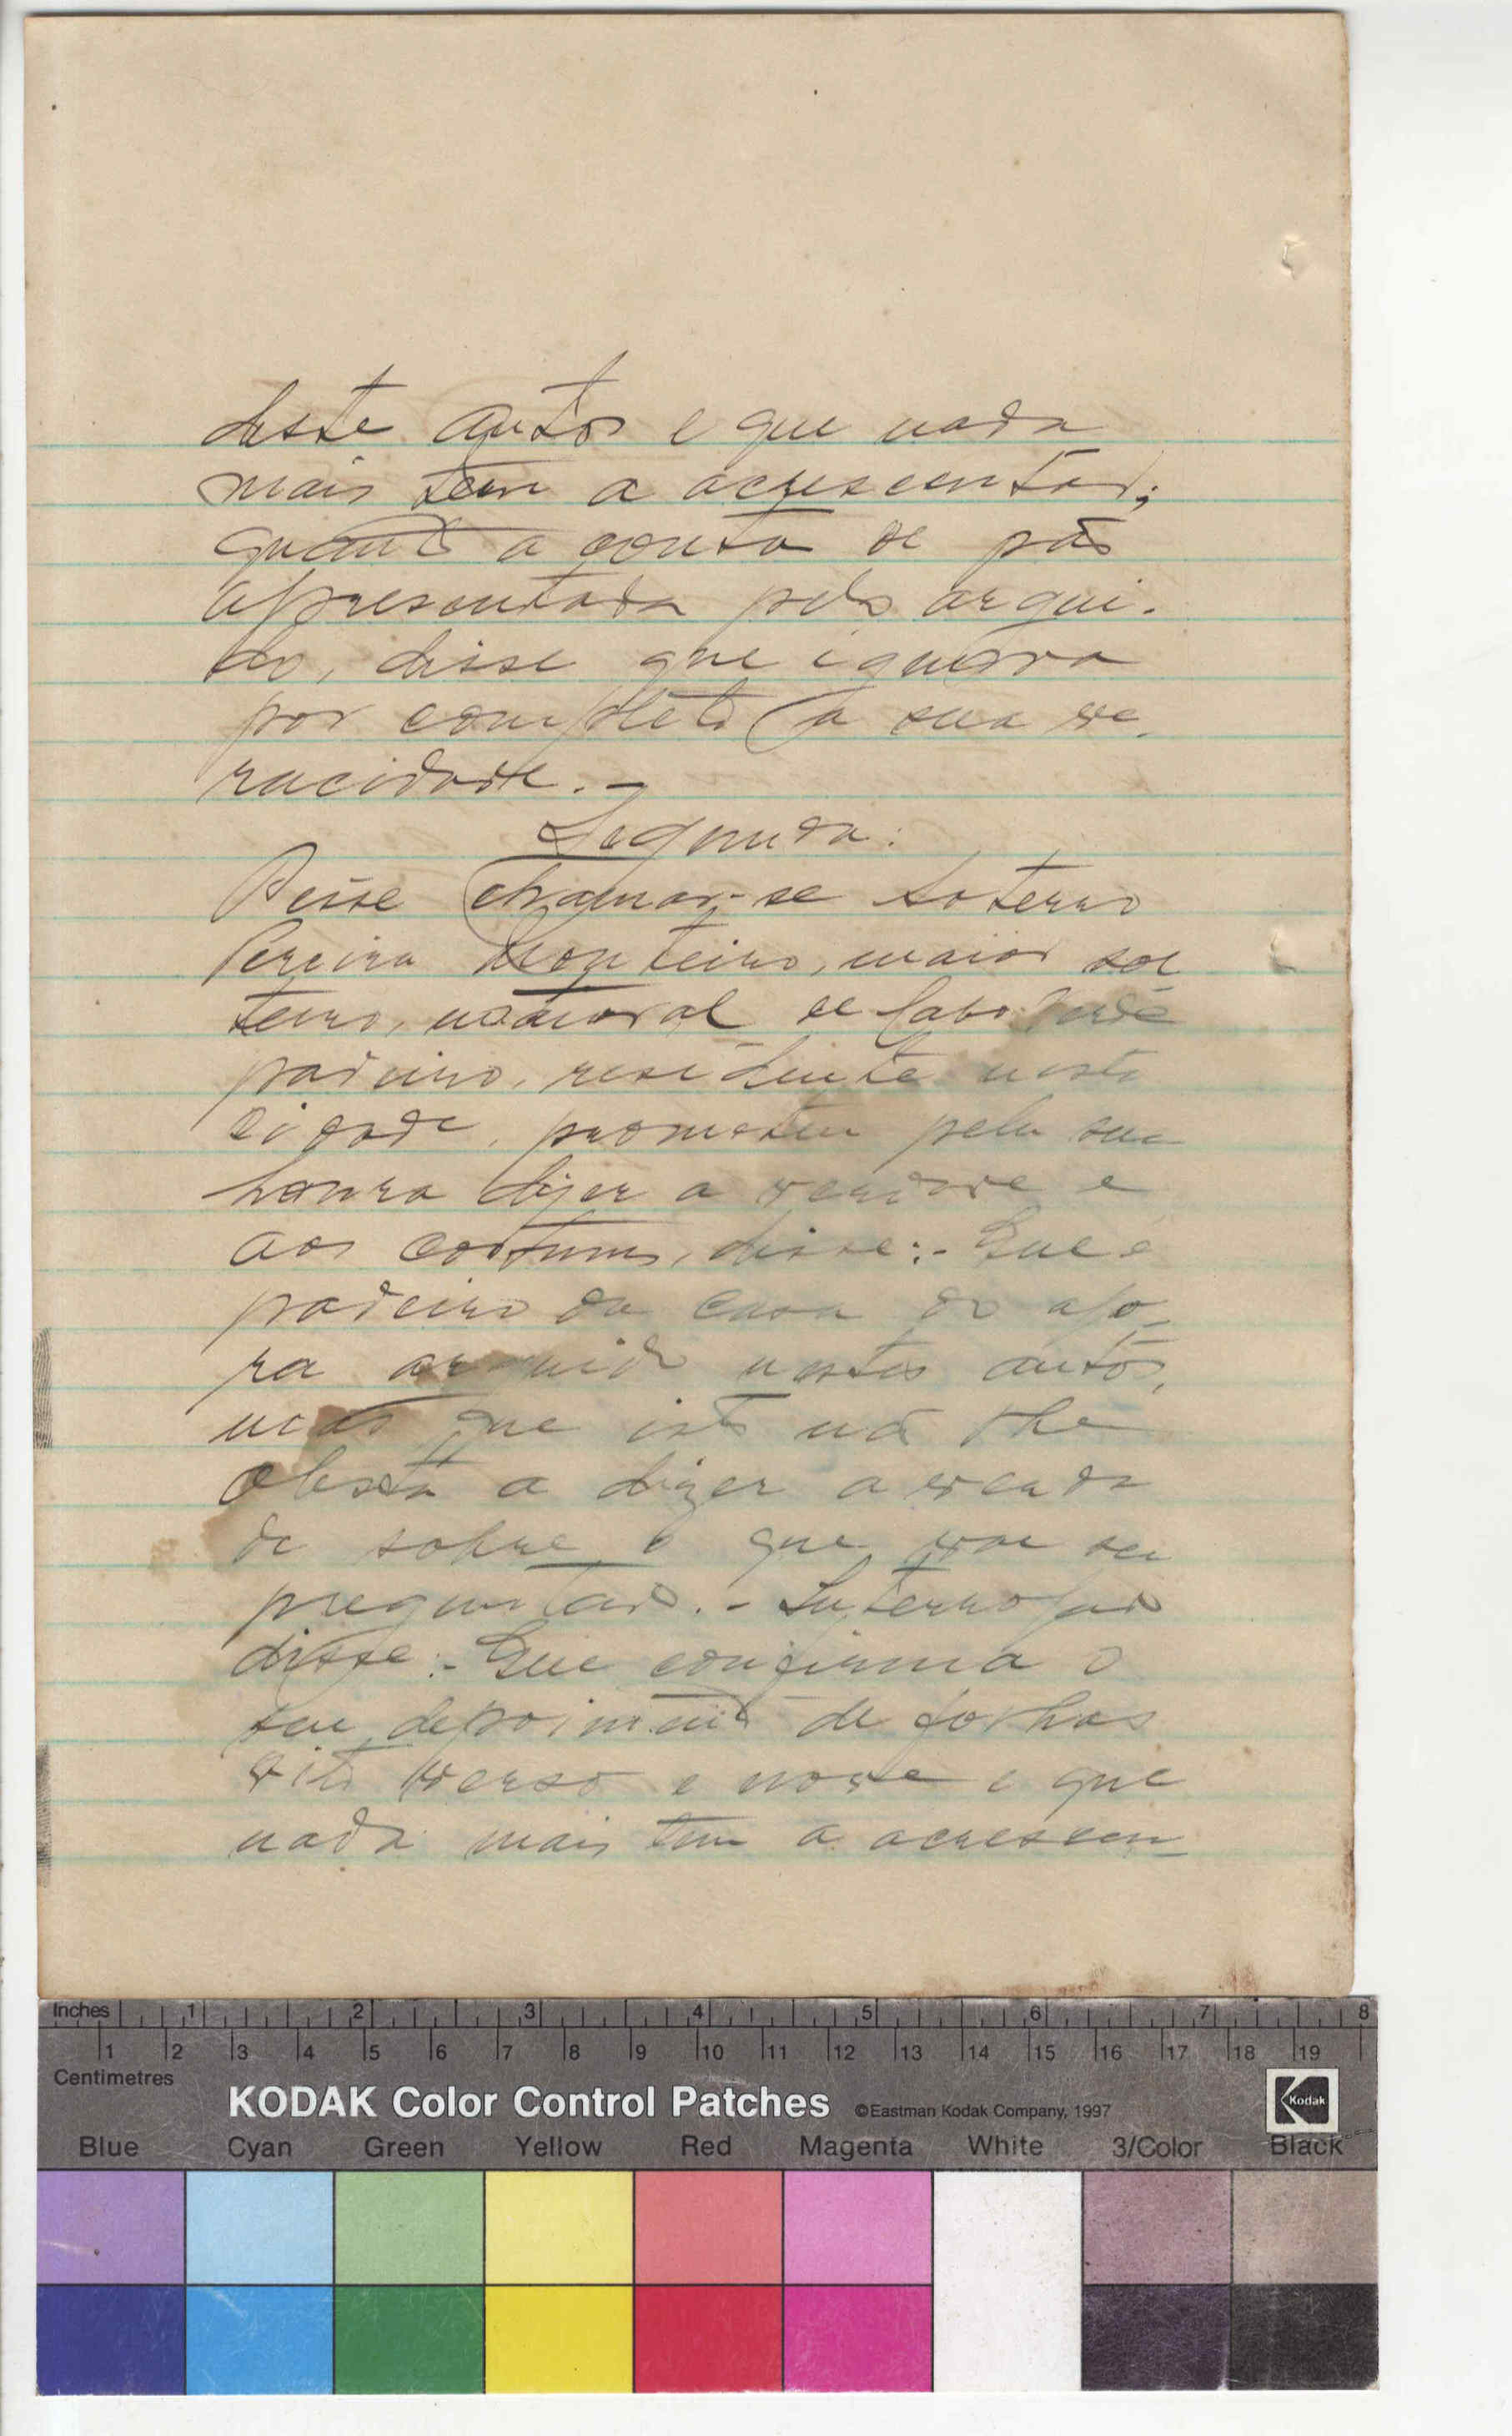 deste autos e que nada
mais tem a acrescentar;
quanto a conta de pão
apresentada pelo argui-
do, disse que ignora
por completo a sua ve-
racidade.-
Segunda:
Disse chamar-se Soterno
Pereira Monteiro, maior sol
teiro, natural de Cabo Verde
padeiro, residente nesta
cidade, prometeu pela sua
honra dizer a verdade e
aos costumes, disse:- Que é
padeiro da casa do ago-
ra arguido nestes autos,
mas que isto não lhe
obsta a dizer a verda
de sobre o que vae ser
preguntado.- Interrogado
disse:- Que confirma o
seu depoimento de folhas
oito verso e nove e que
nada mais tem a acrescen-
Inches 1 2 3 4 5 6 7 8
1 2 3 4 5 6 7 8 9 10 11 12 13 14 15 16 17 18 19
Centimetres
KODAK Color Control Patches ©Eastman Kodak Company, 1997 Kodak
Blue Cyan Green Yellow Red Magenta White 3/Color Black